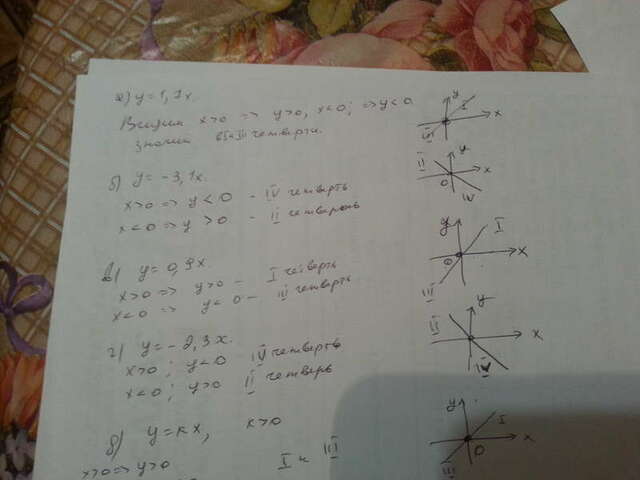 а) y = 1,7x.
x>0 => y>0, x<0; => y<0
значит в I и III четверти.
I
III
y
x
б) y = -3,1x
x>0 => y<0 - IV четверть
x<0 => y>0 - II четверть
II
IV
y
x
0
в) y = 0,9x.
x>0 => y>0 - I четверть
x<0 => y<0 - III четверть
I
III
y
x
0
г) y = -2,3x.
x>0; y<0 IV четверть
x<0; y>0 II четверь
II
IV
y
x
y = кx, к>0
x>0 => y>0 I и III
I
III
y
x
0